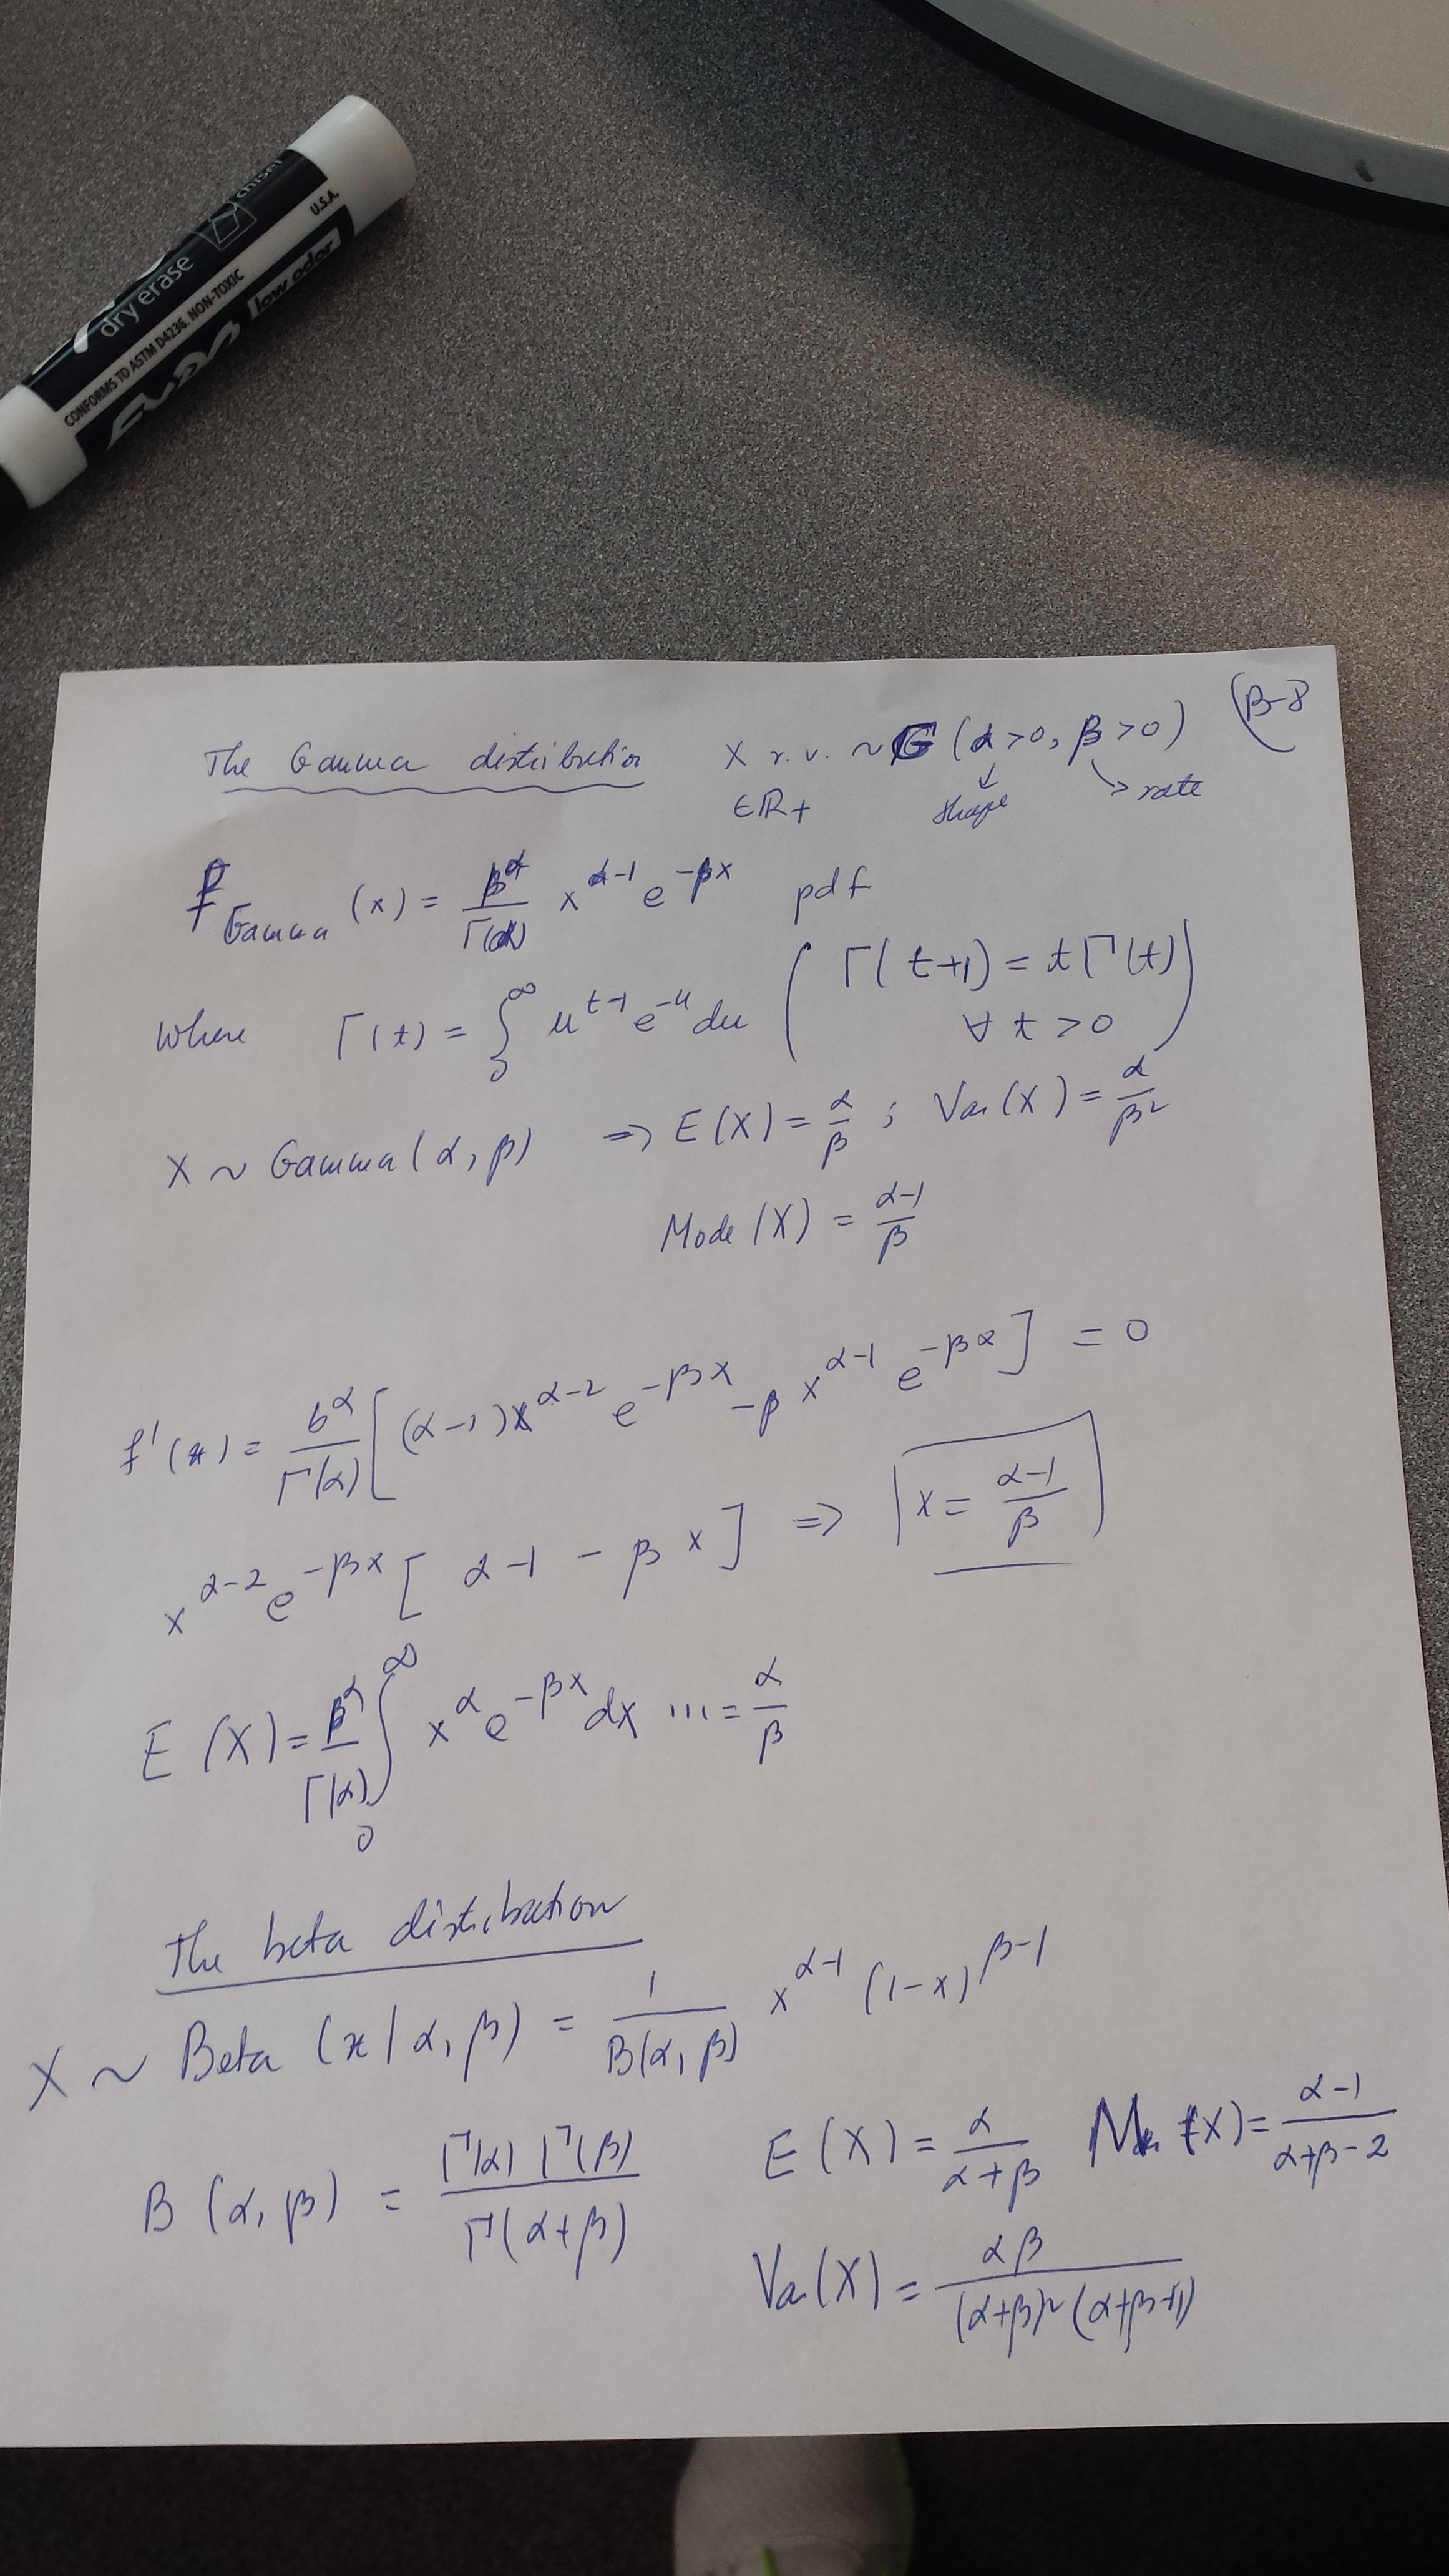 chisel
U.S.A.
dry erase
low odor
CONFORMS TO ASTM D4236. NON-TOXIC
The Gamma distribution X r.v. ~ G (α >0, β >0) (B-8
∈ℝ+ shape → rate
f Gamma (x) = β^α / Γ(α) x^(α-1) e^(-βx) pdf
Where Γ(t) = ∫_0^∞ u^(t-1) e^(-u) du ( Γ(t+1) = tΓ(t)
∀ t >0 )
X ~ Gamma(α, β) ⇒ E(X) = α/β ; Var(X) = α/β²
Mode (X) = (α-1)/β
f'(x) = b^α / Γ(α) [(α-1)x^(α-2) e^(-βx) - β x^(α-1) e^(-βα)] = 0
x^(α-2) e^(-βx) [ α-1 - β x ] ⇒ x = (α-1)/β
E (X) = β^α / Γ(α) ∫_0^∞ x^α e^(-βx) dx ... = α/β
The beta distribution
X ~ Beta (x | α, β) = 1 / B(α, β) x^(α-1) (1-x)^(β-1)
B (α, β) = Γ(α) Γ(β) / Γ(α+β) E (X) = α / (α+β) (X) = (α-1) / (α+β-2)
Var(X) = αβ / (α+β)² (α+β+1)